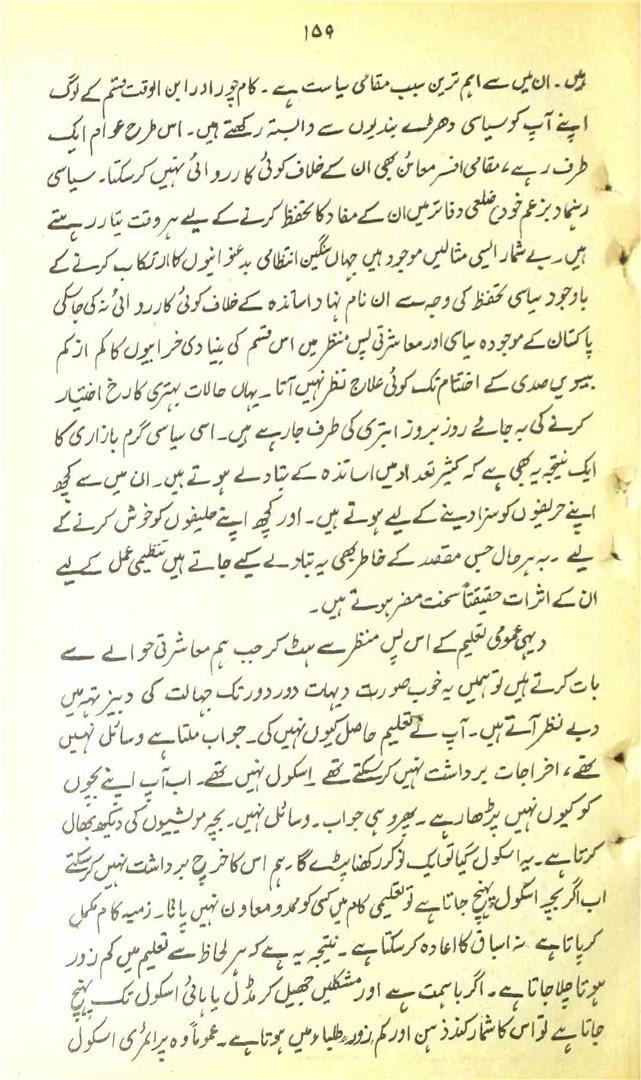 ۱۵۹
ہیں۔ ان میں سے اہم ترین سبب مقامی سیاست ہے۔ کام چور اور ابن الوقت قسم کے لوگ
اپنے آپ کو سیاسی دھڑے بندیوں سے وابستہ رکھتے ہیں۔ اس طرح عوام ایک
طرف رہے، مقامی افسر معائن بھی ان کے خلاف کوئی کارروائی نہیں کر سکتا۔ سیاسی
رہنما بزعم خود ضلعی دفاتر میں ان کے مفاد کا تحفظ کرنے کے لیے ہر وقت تیار رہتے
ہیں۔ بے شمار ایسی مثالیں موجود ہیں جہاں سنگین انتظامی بدعنوانیوں کا ارتکاب کرنے کے
باوجود سیاسی تحفظ کی وجہ سے ان نام نہاد اساتذہ کے خلاف کوئی کارروائی نہ کی جا سکی
پاکستان کے موجودہ سیاسی اور معاشرتی پس منظر میں اس قسم کی بنیادی خرابیوں کا کم از کم
بیسویں صدی کے اختتام تک کوئی علاج نظر نہیں آتا۔ یہاں حالات بہتری کا رخ اختیار
کرنے کی بہ جائے روز بروز ابتری کی طرف جا رہے ہیں۔ اسی سیاسی گرم بازاری کا
ایک نتیجہ یہ بھی ہے کہ کثیر تعداد میں اساتذہ کے تبادلے ہوتے ہیں۔ ان میں سے کچھ
اپنے حریفوں کو سزا دینے کے لیے ہوتے ہیں۔ اور کچھ اپنے حلیفوں کو خوش کرنے کے
لیے۔ بہ ہر حال جس مقصد کے خاطر بھی یہ تبادلے کیے جاتے ہیں تنظیمی عمل کے لیے
ان کے اثرات حقیقتاً سخت مضر ہوتے ہیں۔
دیہی عمومی تعلیم کے اس پس منظر سے ہٹ کر جب ہم معاشرتی حوالے سے
بات کرتے ہیں تو ہمیں یہ خوب صورت دیہات دور دور تک جہالت کی دبیز تہہ میں
دبے نظر آتے ہیں۔ آپ نے تعلیم حاصل کیوں نہیں کی۔ جواب ملتا ہے وسائل نہیں
تھے، اخراجات برداشت نہیں کر سکتے تھے۔ اسکول نہیں تھے۔ اب آپ اپنے بچوں
کو کیوں نہیں پڑھا رہے۔ پھر وہی جواب۔ وسائل نہیں۔ بچہ مویشیوں کی دیکھ بھال
کرتا ہے۔ یہ اسکول گیا تو ایک نوکر رکھنا پڑے گا۔ ہم اس کا خرچ برداشت نہیں کر سکتے
اب اگر بچہ اسکول پہنچ جاتا ہے تو تعلیمی کام میں کسی کو ممد و معاون نہیں پاتا۔ نہ زمیہ کام مکمل
کر پاتا ہے نہ اسباق کا اعادہ کر سکتا ہے۔ نتیجہ یہ ہے کہ ہر لحاظ سے تعلیم میں کم زور
ہوتا چلا جاتا ہے۔ اگر باہمت ہے اور مشکلیں جھیل کر مڈل یا ہائی اسکول تک پہنچ
جاتا ہے تو اس کا شمار کند ذہن اور کم زور طلباء میں ہوتا ہے۔ عموماً وہ پرائمری اسکول